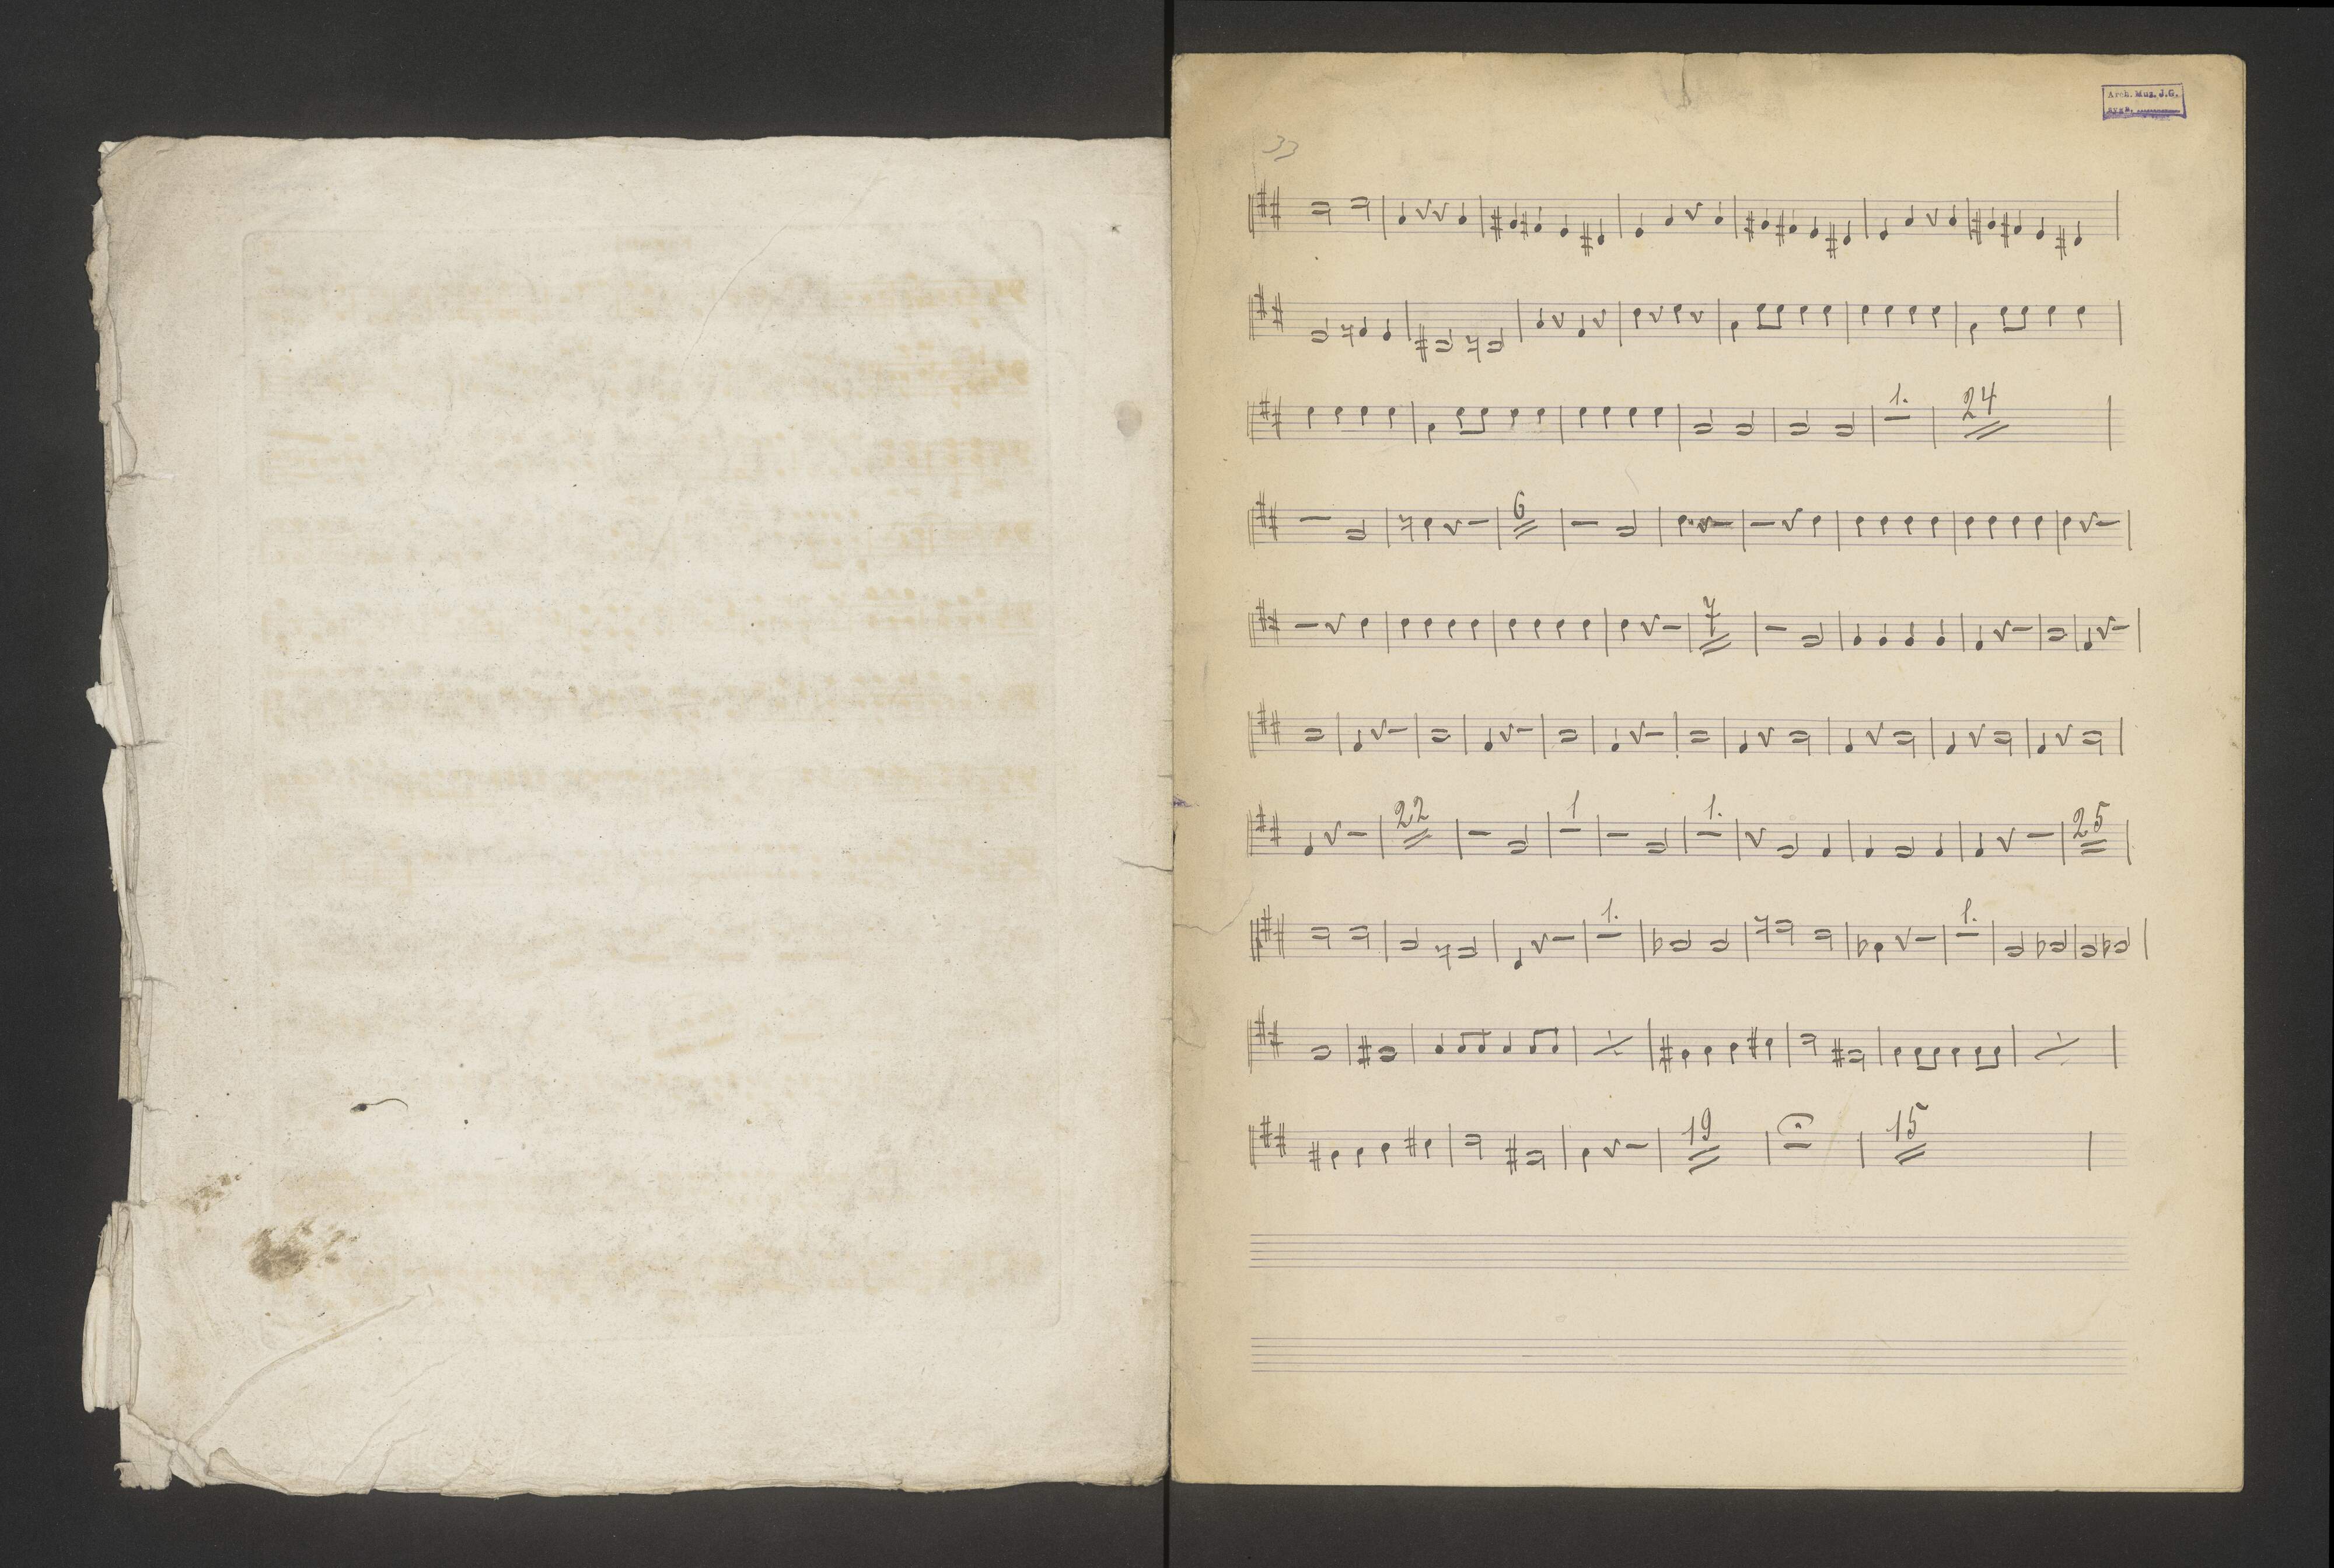 Arch. Muz. J.G.
33
1. 24
6
7
22 1 1. 25
1. 1.
19 15